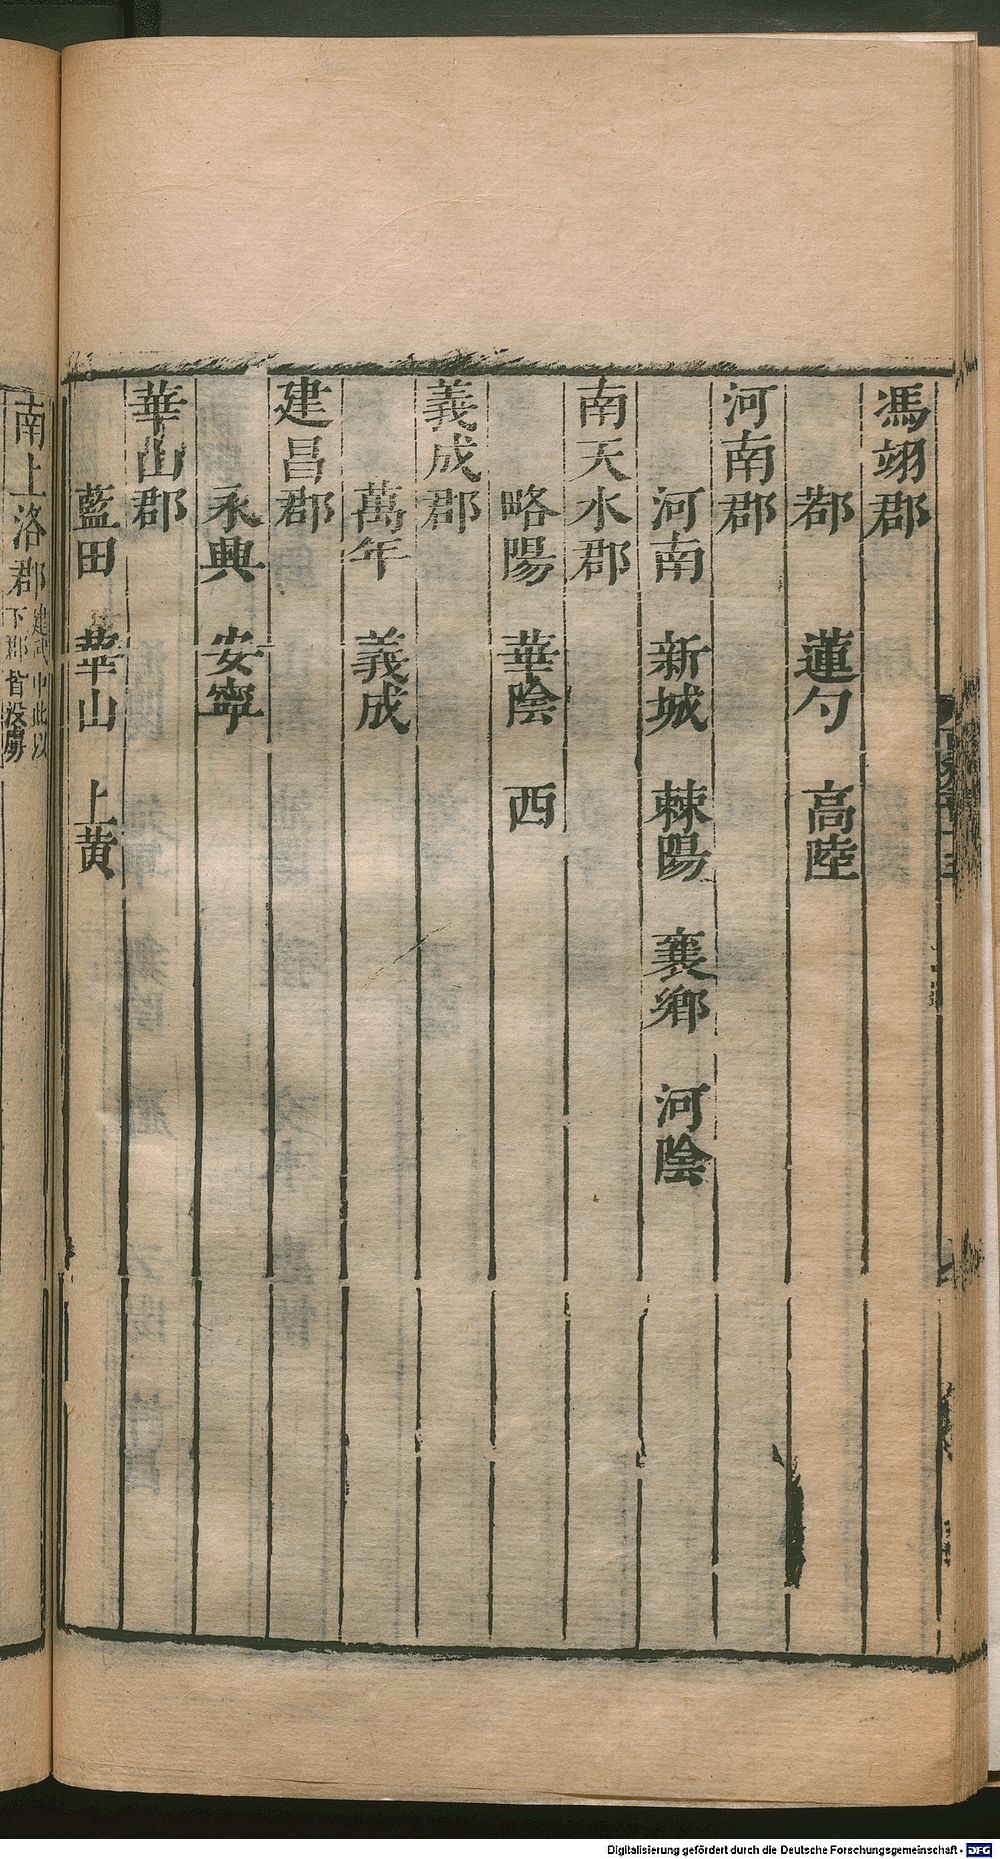 馮翊郡
鄀　蓮勺　高陸
河南郡
河南　新城　棘陽　襄鄉　河陰
南天水郡
略陽　華陰　西
義成郡
萬年　義成
建昌郡
永興　安寧
華山郡
藍田　華山　上黃
南上洛郡 建武中此以下郡皆沒虜
Digitalisierung gefördert durch die Deutsche Forschungsgemeinschaft - DFG